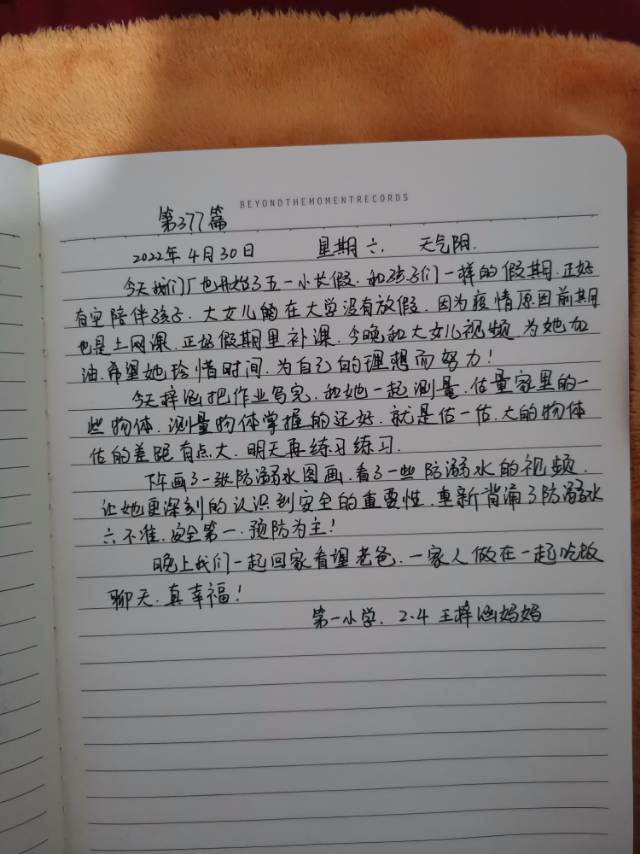 BEYONDTHEMOMENTRECORDS
第377篇
2022年4月30日 星期六. 天气阴.
今天我们厂也开始了五一小长假.和孩子们一样的假期.正好
有空陪伴孩子.大女儿的在大学没有放假.因为疫情原因前期
也是上网课.正好假期里补课.今晚和大女儿视频.为她加
油.希望她珍惜时间.为自己的理想而努力!
今天梓涵把作业写完.和她一起测量.估量家里的一
些物体.测量物体掌握的还好.就是估一估.大的物体
估的差距有点大.明天再练习练习.
下午画了一张防溺水图画.看了一些防溺水的视频.
让她更深刻的认识到安全的重要性.重新背诵了防溺水
六不准.安全第一.预防为主!
晚上我们一起回家看望老爸.一家人做在一起吃饭
聊天.真幸福!
第一小学. 2.4 王梓涵妈妈